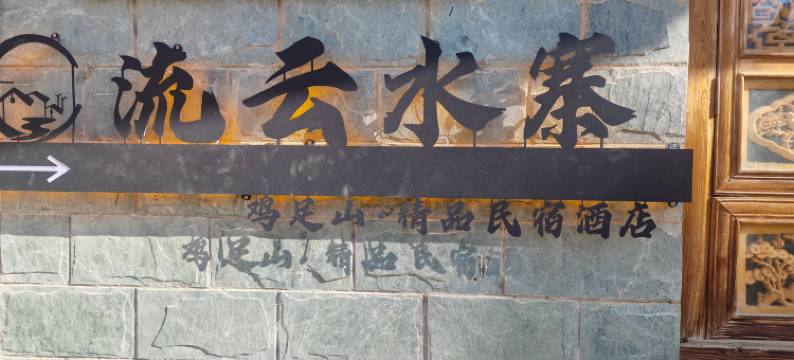 流云水寨
鸡足山·精品民宿酒店